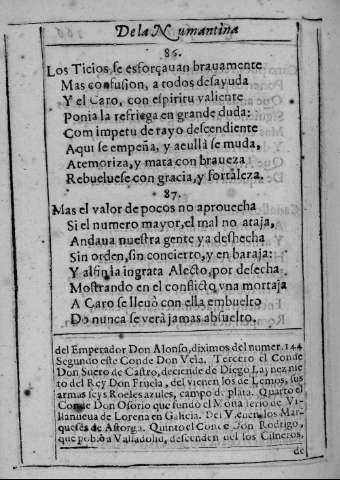 De la Numantina
86.
Los Ticios, se esforçauan brauamente
Mas confusion, a todos desayuda
Y el Caro, con espiritu valiente
Ponia la refriega en grande duda:
Com impetu de rayo descendiente
Aqui se empeña, y aculla se muda,
Atemoriza, y mata con braueza
Rebueluese con gracia, y fortaleza.
87.
Mas el valor de pocos no aprouecha
Si el numero mayor, el mal no ataja,
Andaua nuestra gente ya deshecha
Sin orden, sin concierto, y en baraja:
Y alfin la ingrata Alecto, por desecha
Mostrando en el conflicto vna mortaja
A Caro se lleuò con ella embuelto
Do nunca se verà jamas absuelto.
del Emperador Don Alonso, diximos del numer. 144
Segundo este Conde Don Vela. Tercero el Conde
Don Suero de Castro, deciende de Diego Laynez nie
to del Rey Don Fruela, del vienen los de Lemos, sus
armas seys Roeles azules, campo de plata. Quarto el
Conde Don Osorio que fundò el Monasterio de Vi-
llanueua de Lorena en Galicia. Del vienen los Mar-
queses de Astorga. Quinto el Conde Don Rodrigo,
que poblò a Valladolid, descenden del los Cisneros,
de